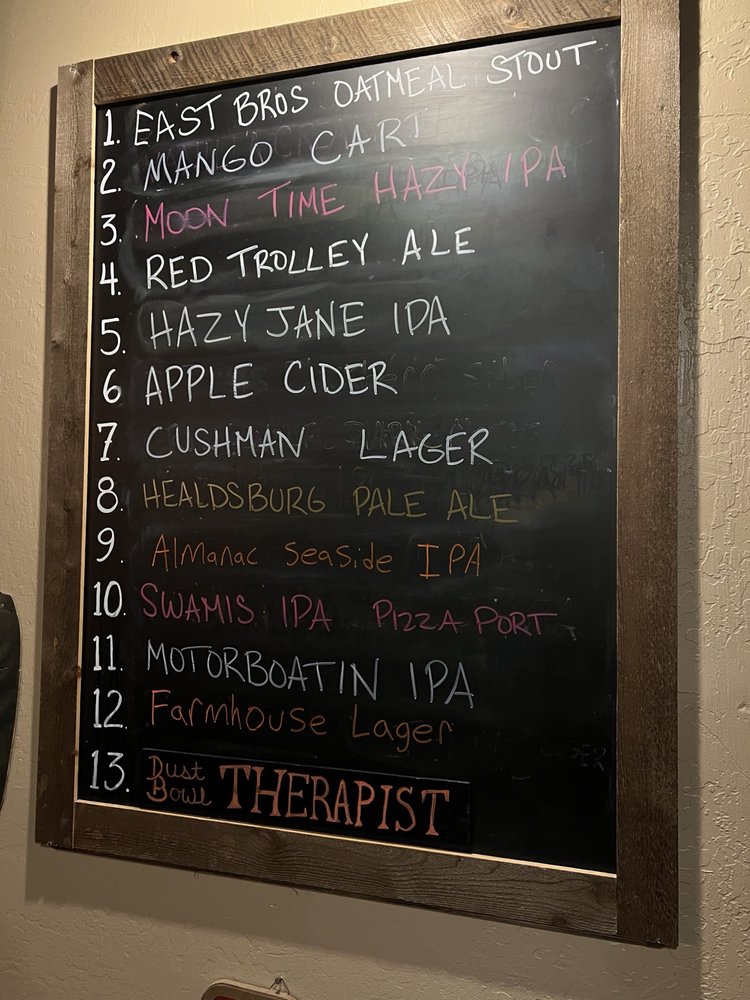 1. EAST BROS OATMEAL STOUT
2. MANGO CART
3. MOON TIME HAZY IPA
4. RED TROLLEY ALE
5. HAZY JANE IPA
6 APPLE CIDER
7. CUSHMAN LAGER
8. HEALDSBURG PALE ALE
9. Almanac Seaside IPA
10. SWAMIS IPA PIZZA PORT
11. MOTORBOATIN IPA
12. Farmhouse Lager
13. Dust Bowl THERAPIST